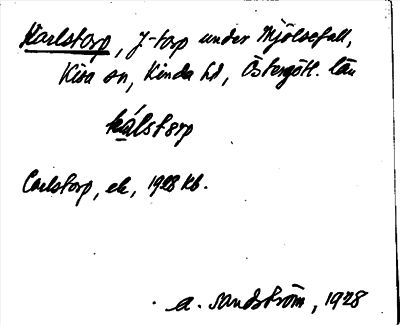 Karlstorp, J-torp under Mjölsefall,
Kisa sn, Kinda hd, Östergötl. län
kálstorp
Carlstorp, ek, 1928 Kb.
A. Sandström, 1928